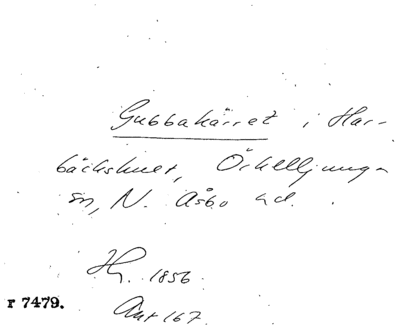 Gubbakärret i Har-
bäckshult, Örkelljunga
sn, N. Åsbo hd.
Hg. 1856.
r 7479.
Ant 167.